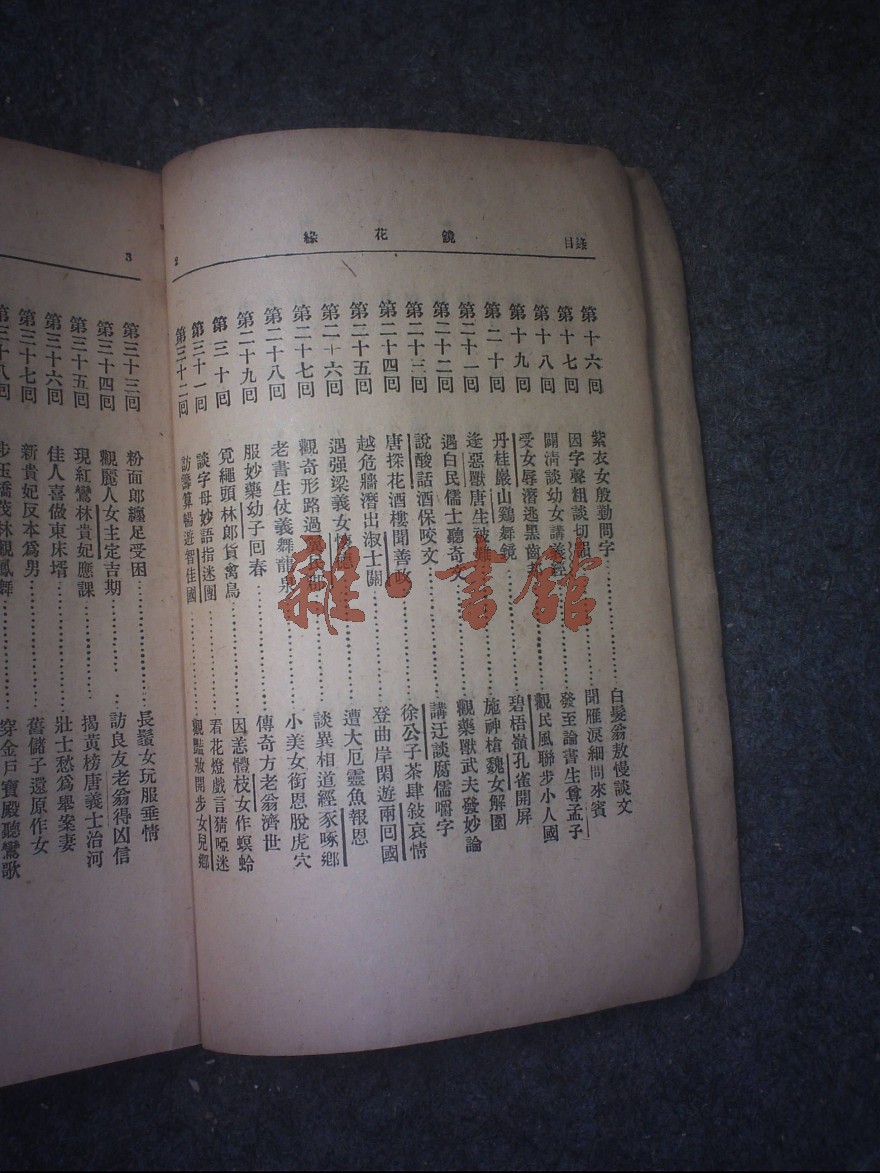 目錄 鏡花緣 2
第十六回 紫衣女殷勤問字……白髮翁敖慢談文
第十七回 因字聲粗談切韻……聞雁淚細問來賓
第十八回 闢淸談幼女講義經……發至論書生尊孟子
第十九回 受女辱潛逃黑齒……觀民風聯步小人國
第二十回 丹桂巖山鷄舞鏡……碧梧嶺孔雀開屏
第二十一回 逢惡獸唐生被難……施神槍魏女解圍
第二十二回 遇白民儒士聽奇文……觀藥獸武夫發妙論
第二十三回 說酸話酒保咬文……講迂談腐儒嚼字
第二十四回 唐探花酒樓聞善政……徐公子茶肆敍哀情
第二十五回 越危牆潛出淑士關……登曲岸閑遊兩面國
第二十六回 遇强梁義女懷德……遭大厄靈魚報恩
第二十七回 觀奇形路過翼民郡……談異相道經豕啄鄉
第二十八回 老書生仗義舞龍泉……小美女銜恩脫虎穴
第二十九回 服妙藥幼子回春……傳奇方老翁濟世
第三十回 覓蠅頭林郎貨禽鳥……因恙體枝女作螟蛉
第三十一回 談字母妙語指迷團……看花燈戲言猜啞迷
第三十二回 訪籌算暢遊智佳國……觀豔妝閑步女兒鄉
3
第三十三回 粉面郎纏足受困……長鬚女玩服垂情
第三十四回 觀麗人女主定吉期……訪良友老翁得凶信
第三十五回 現紅鸞林貴妃應課……揭黃榜唐義士治河
第三十六回 佳人喜做東床壻……壯士愁爲舉案妻
第三十七回 新貴妃反本爲男……舊儲子還原作女
第三十八回 步玉橋茂林觀鳳舞……穿金戶寶殿聽鸞歌
雜·書館